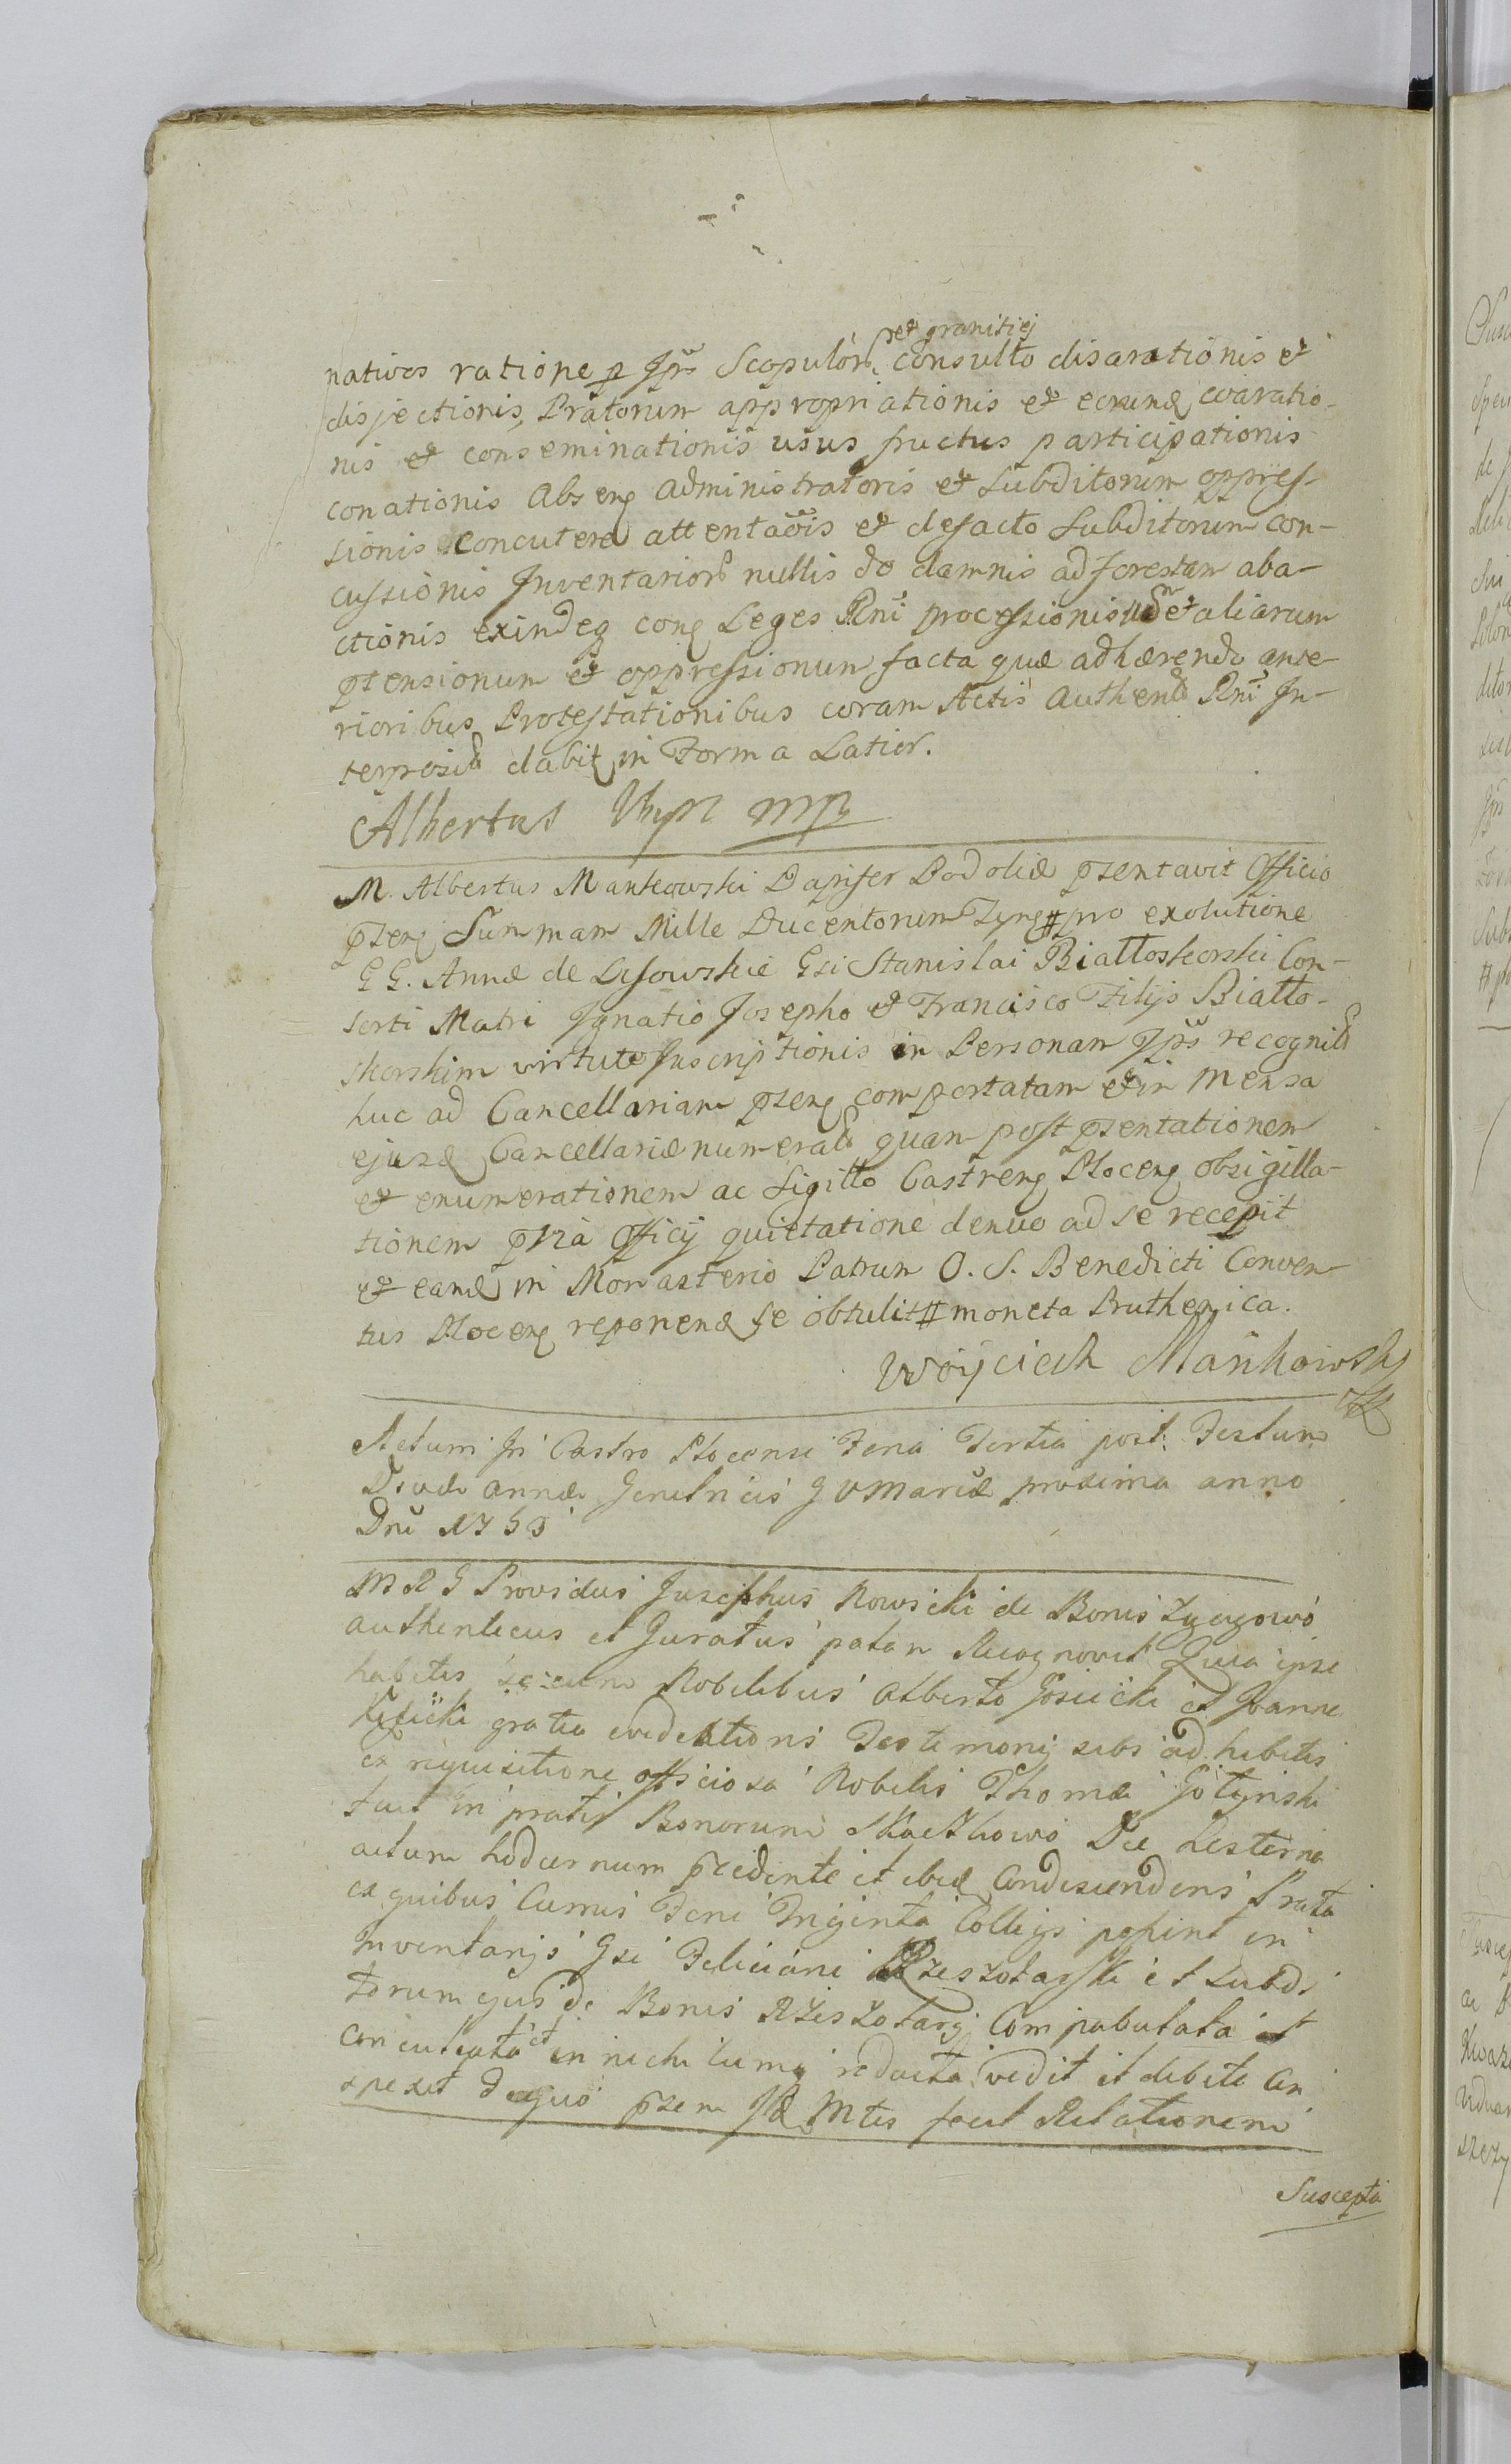 et granitiej
natives ratione p Jps Scopulor consulto disarationis et
disjectionis, Pratorum appropriationis et eorund coaratio-
nis et conseminationis usus fructus participationis
conationis Abseng Administratoris et Subditorum oppres-
sionis concutere attentaois et defacto Subditorum con-
cussionis Inventarior nullis do damnis ad forestam aba-
ctionis exindeq Leges Rni processionis et aliarum
ptensionum et oppressionum facta quæ adhærendo ante-
rioribus Protestationibus coram Actis Authend Rni In-
terposid dabit in Forma Latior.
Albertus mp
M. Albertus Mankowski Dapifer Podoliæ pzentavit Officio
pzens Summam Mille Ducentorum # pro exolutione
GG. Annæ de Lasowskie Gsi Stanislai Biattoskorski Con-
sorti Matri Ignatio Josepho et Francisco Filijs Biatto-
skorskim virtute Inscriptionis in Personam Jps recognid
huc ad Cancellariam pzeng comportatam et in Mensa
ejusd Cancellariæ numerad quam post pzentationem
et enumerationem ac Sigillo Castreng Ploceng obsigilla-
tionem pvia Officij quietatione denuo ad se recepit
et eand in Monasterio Patrum O. S. Benedicti Conven-
tus Ploceng reponend se obtulit # moneta Pruthenica.
Woyciech Mańkowsky
Actum In Castro Plocensi Feria Tertia post Festum
Divæ Annæ Genetricis G V Mariæ proxima anno
Dni 1755
M R G Providus Josephus Nowicki de Bonis
authenticus et Juratus palam Recognovit Quia ipse
habitis secum Nobilibus Alberto Gosicki et Joanne
Kesicki gratia evidentioris Testimonij sibi adhibitis
ex requisitione officiosa Nobilis Thomæ Gotynski
fuit in pratis Bonorum Skaczkowo Die hesterna
actum hodiernum pcedente et ibid Condescendens Prata
ex quibus Currus Feni Triginta Colligi potuint in
Inventarijs Gsi Feliciani Rzeszotarski et Subdi
torum ejus de Bonis Rzeszotary Compabulata et
Conculcata et in nichilumq redacta vidit et debite Con
spexit de quo pzem Jd Mtis fecit Relationem
Suscepta